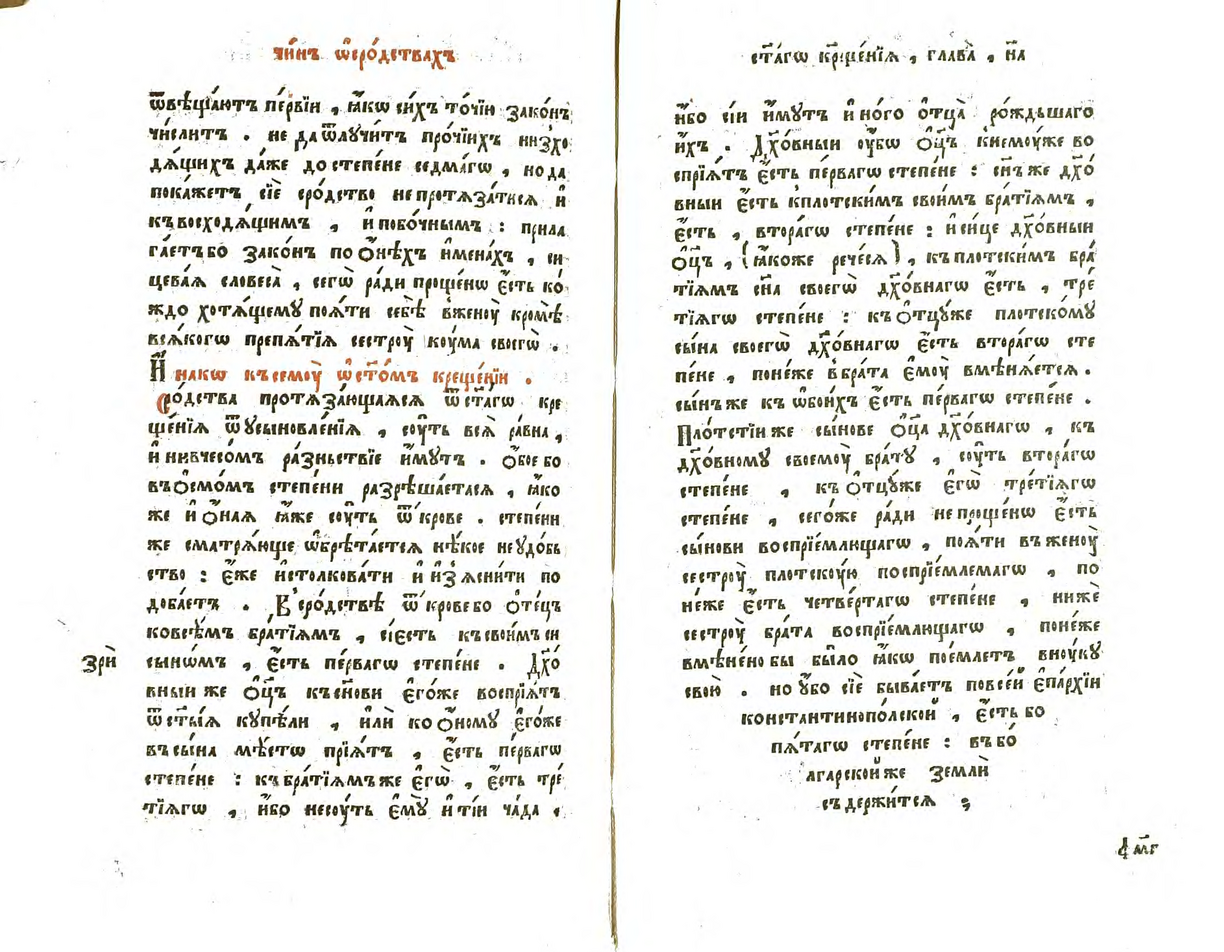 чи́нъ ѡ҆сро́дствахъ
ѿвѣщаю́тъ пе́рвїи , ꙗ҆́кѡ си́хъ то́чїи зако́нъ
чи́слитъ . не да ѿлучи́тъ про́чїихъ низхо
дѧ́щихъ да́же до степе́не седма́гѡ , но да
пока́жетъ сїѐ сро́дство не протѧза́тисѧ и҆
къ восходѧ́щимъ , и҆ побо́чнымъ : прила
га́етъ бо зако́нъ по ѻ҆нѣ́хъ и҆менахъ , си
цева́ѧ словеса̀ , сегѡ̀ ра́ди проще́нѡ є҆́сть ко́
ждо хотѧ́щему поѧ́ти себѣ̀ в женоу̀ кромѣ̀
всѧ́когѡ препѧ́тїѧ сестроу̀ коу́ма своегѡ̀ .
И҆́накѡ къ семоу̀ ѡ҆ ст҃о́мъ креще́нїи .
Сро́дства протѧза́ющаѧсѧ ѿ ст҃а́гѡ кре
ще́нїѧ ѿ усыновле́нїѧ , соу́ть всѧ̀ ра́вна ,
и҆ ни в чесо́мъ ра́зньствїе и҆́мутъ . ѻ҆бо́е бо
въ ѻ҆смо́мъ степени разрѣша́етасѧ , ꙗ҆́ко
же и҆ ѻ҆́наѧ ꙗ҆́же соу́ть ѿ крове . степени
же сматрѧ́юще ѡ҆брѣта́етсѧ нѣ́кое неудо́бь
ство : є҆́же и҆столкова́ти и҆ и҆з̾ѧсни́ти по
доба́етъ . В сро́дствѣ ѿ крове бо ѻ҆те́цъ
ко всѣ́мъ бра́тїѧмъ , сїе́сть къ свои́мъ си
сынѡ́мъ , є҆́сть пе́рвагѡ степе́не . Дх҃о́
вныи же ѻ҆ц҃ъ къ сн҃ови є҆го́же воспрїѧ́тъ
ѿ ст҃ы́ѧ купѣ́ли , и҆лѝ ко ѻ҆́ному є҆го́же
въ сы́на мѣ́стѡ прїѧ́тъ , є҆́сть пе́рвагѡ
степе́не : къ бра́тїѧмъ же є҆гѡ̀ , є҆́сть тре́
тїѧгѡ , и҆́бо не соу́ть є҆му̀ и҆ ті́и ча́да .
зрѝ
ст҃а́гѡ кр҃ще́нїѧ , глава̀ , н҃а
и҆́бо сі́и и҆́мутъ и҆но́го ѻ҆тца̀ ро́ждьшаго
и҆́хъ . Дх҃о́вныи оу҆́бѡ ѻ҆ц҃ъ к немоу́же во
спрїѧ́тъ є҆́сть пе́рвагѡ степе́не : сн҃ъ же дх҃о́
вныи є҆́сть к пло́тскимъ свои́мъ бра́тїѧмъ ,
є҆́сть , втора́гѡ степе́не : и҆ си́це дх҃о́вныи
ѻ҆ц҃ъ , (ꙗ҆́коже рече́сѧ) , къ пло́тскимъ бра́
тїѧмъ сн҃а своегѡ̀ дх҃о́внагѡ є҆́сть , тре́
тїѧгѡ степе́не : къ ѻ҆тцу́же пло́тскому
сы́на своегѡ̀ дх҃о́внагѡ є҆́сть втора́гѡ сте
пе́не , поне́же в бра́та є҆моу̀ вмѣнѧ́етсѧ .
сы́нъ же къ ѡ҆бои́хъ є҆́сть пе́рвагѡ степе́не .
Пло́тстїи же сы́нове ѻ҆ц҃а дх҃о́внагѡ , къ
дх҃о́вному своемоу̀ бра́ту , соу́ть втора́гѡ
степе́не , къ ѻ҆тцу́же є҆гѡ̀ тре́тїѧгѡ
степе́не , сего́же ра́ди не проще́нѡ є҆́сть
сы́нови воспрїе́млющагѡ , поѧ́ти въ женоу̀
сестроу̀ пло́тскоую поспрїе́млемагѡ , по
не́же є҆́сть четве́ртагѡ степе́не , ниже́
сестроу̀ бра́та воспрїе́млющагѡ , поне́же
вмѣне́но бы бы́ло ꙗ҆́кѡ пое́млетъ вноу́ку
свою̀ . но у҆́бо сїѐ быва́етъ по все́й є҆па́рхїи
константинопо́лской , є҆́сть бо
пѧ́тагѡ степе́не : въ бо́
агарской же земли̇̀
съдержи́тсѧ ;
҂ м҃г